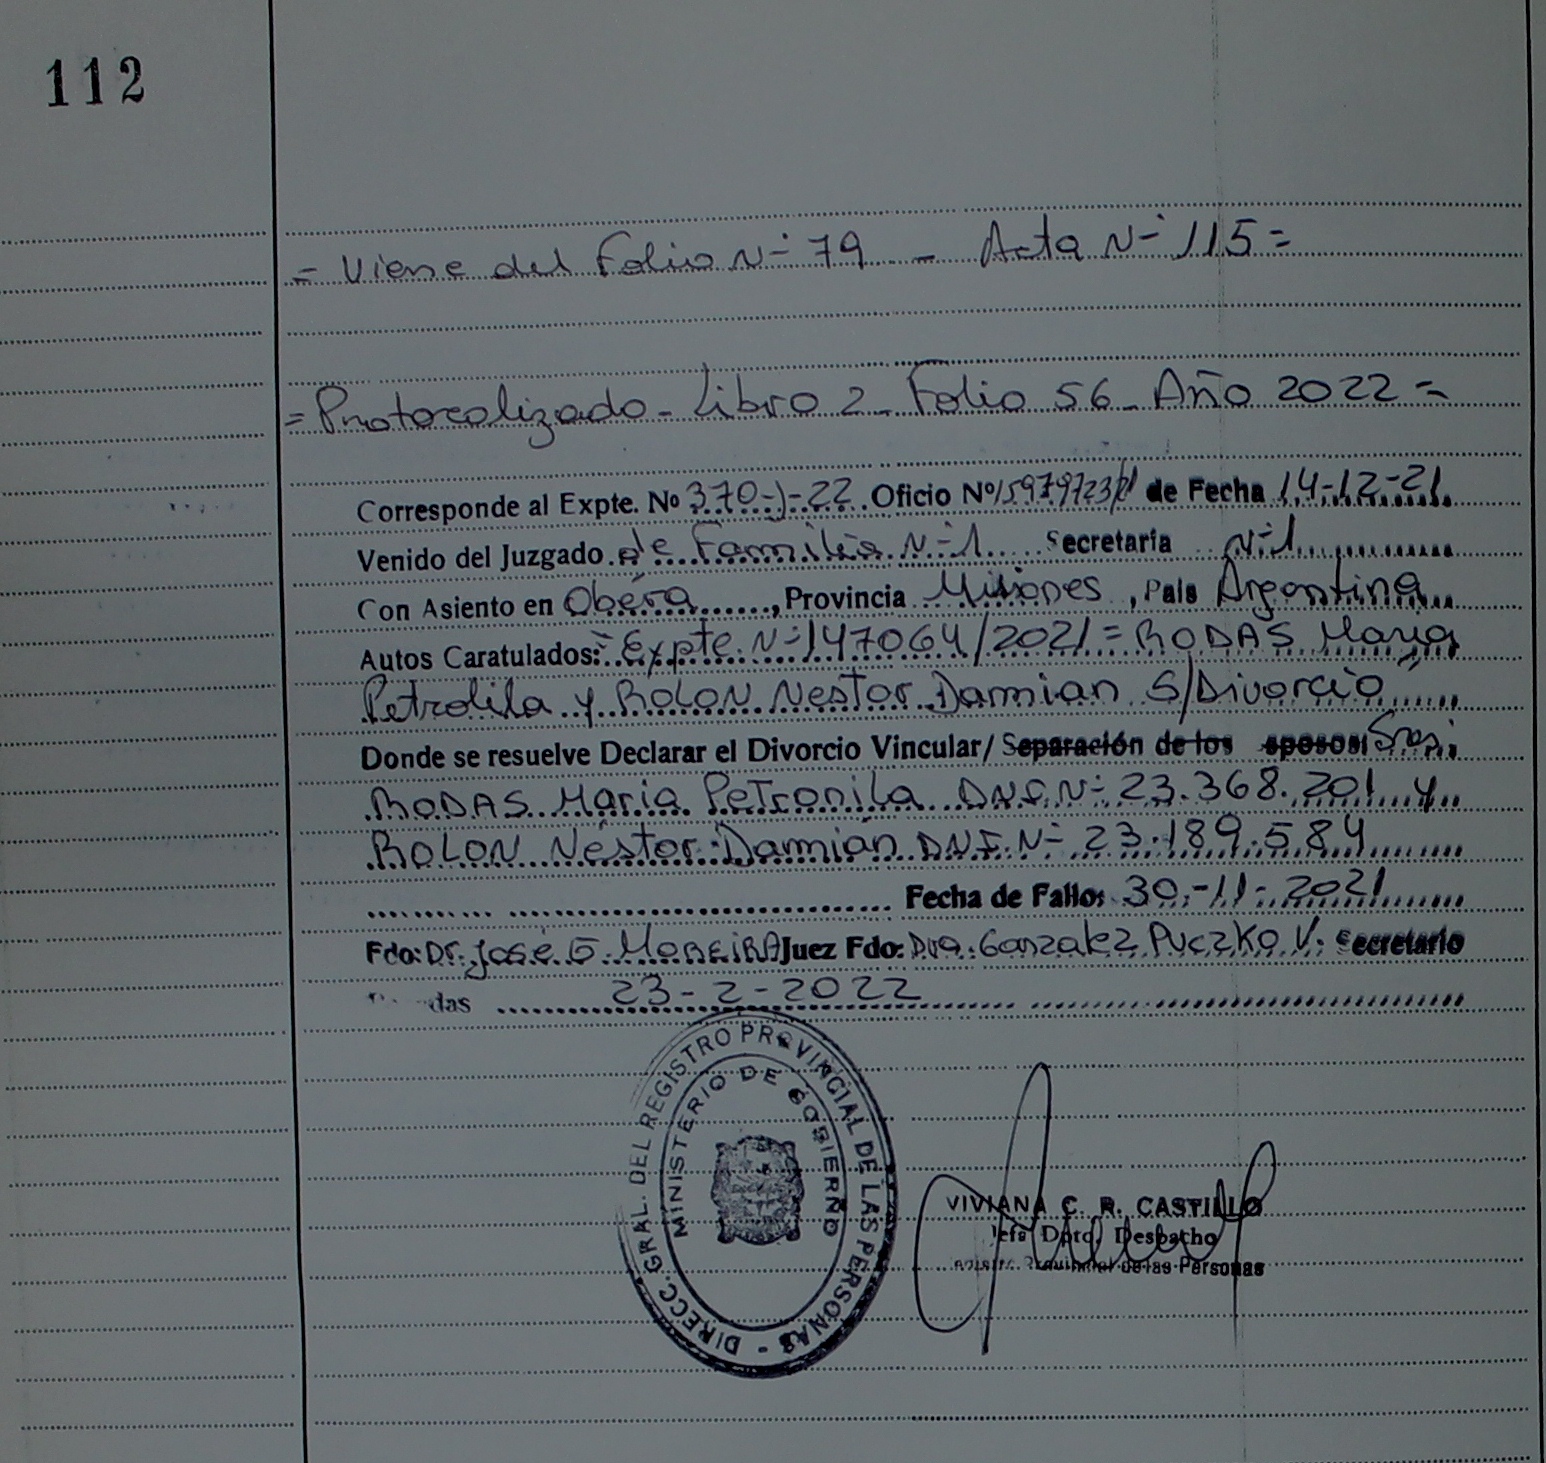 112
= Viene del Folio N° 79 - Acta N° 115 =
= Protocolizado - Libro 2 - Folio 56 - Año 2022 =
Corresponde al Expte. No 370-J-22 Oficio Nº 15979723/21 de Fecha 14-12-21
Venido del Juzgado de Familia N°1 Secretaria N°1
Con Asiento en Oberá, Provincia Misiones, Pais Argentina
Autos Caratulados: "Expte. N° 147064/2021 = RODAS Maria
Petrolila y ROLON Nestor Damian S/Divorcio"
Donde se resuelve Declarar el Divorcio Vincular/ Separación de los esposos: Sres.
RODAS Maria Petronila D.N.I. N° 23.368.201 y
ROLON Néstor Damián D.N.I. N° 23.189.584
Fecha de Fallo: 30-11-2021
Fdo: Dr. José G. MOREIRA Juez Fdo: Dra. Gonzalez Puczko V. Secretario
das 23-2-2022
DIRECC. GRAL. DEL REGISTRO PROVINCIAL DE LAS PERSONAS -
MINISTERIO DE GOBIERNO
VIVIANA C. R. CASTILLO
Jefa Dpto. Despacho
Provincial de las Personas